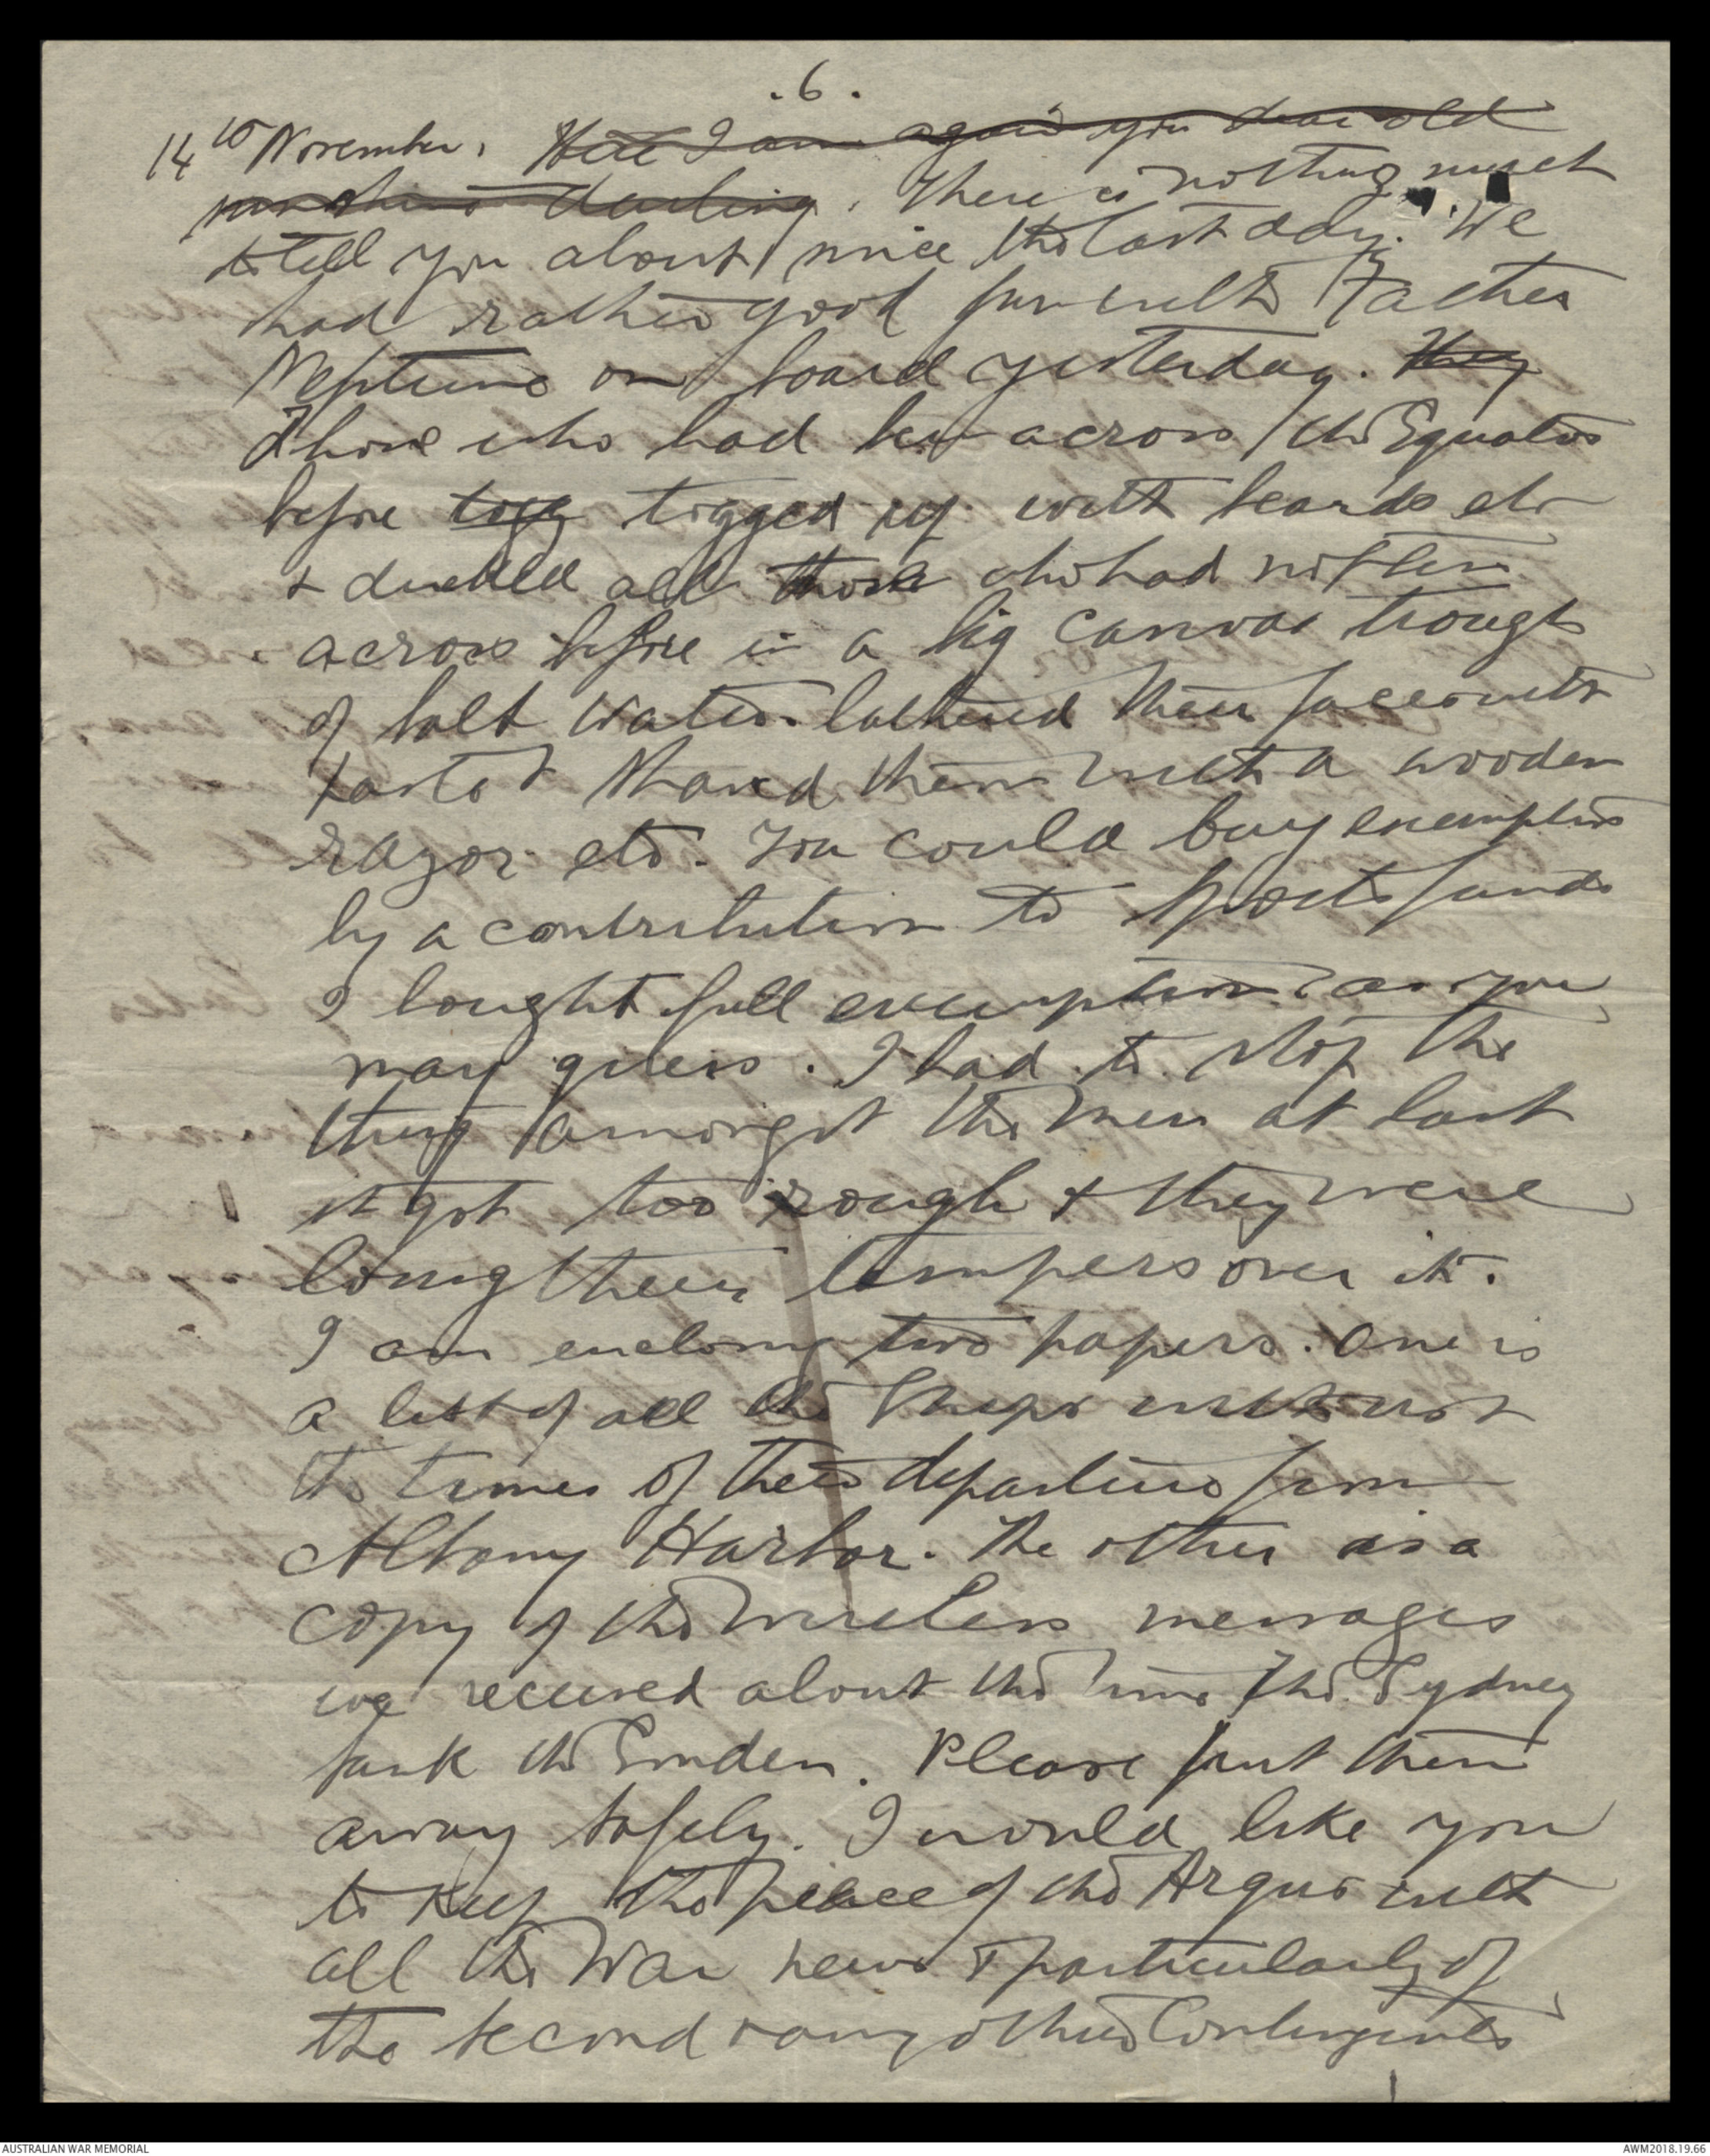 .6.
14th November. Here I am again you dear old
sunshine darling. There is nothing much
to tell you about since the last day. We
had rather good fun with Father
Neptune on board yesterday. They
Those who had been across the Equator
before togg togged up with beards etc
& ducked all those who had not been
across before in a big canvas trough
of salt water. lathered their faces with
paste & shaved them with a wooden
razor etc. You could buy exemption
by a contribution to sports funds
I bought full exemption as you
may guess. I had to stop the
thing amongst the men at last
it got too rough & they were
losing their tempers over it.
I am enclosing two papers. One is
a list of all the Ships with us &
the times of their departure from
Albany Harbor. The other is a
copy of the wireless messages
we received about the time the Sydney
sunk the Emden. Please put them
away safely. I would like you
to keep the piece of the Argus with
all the War news & particularly of
the second & any other Contingents
AUSTRALIAN WAR MEMORIAL
AWM2018.19.66